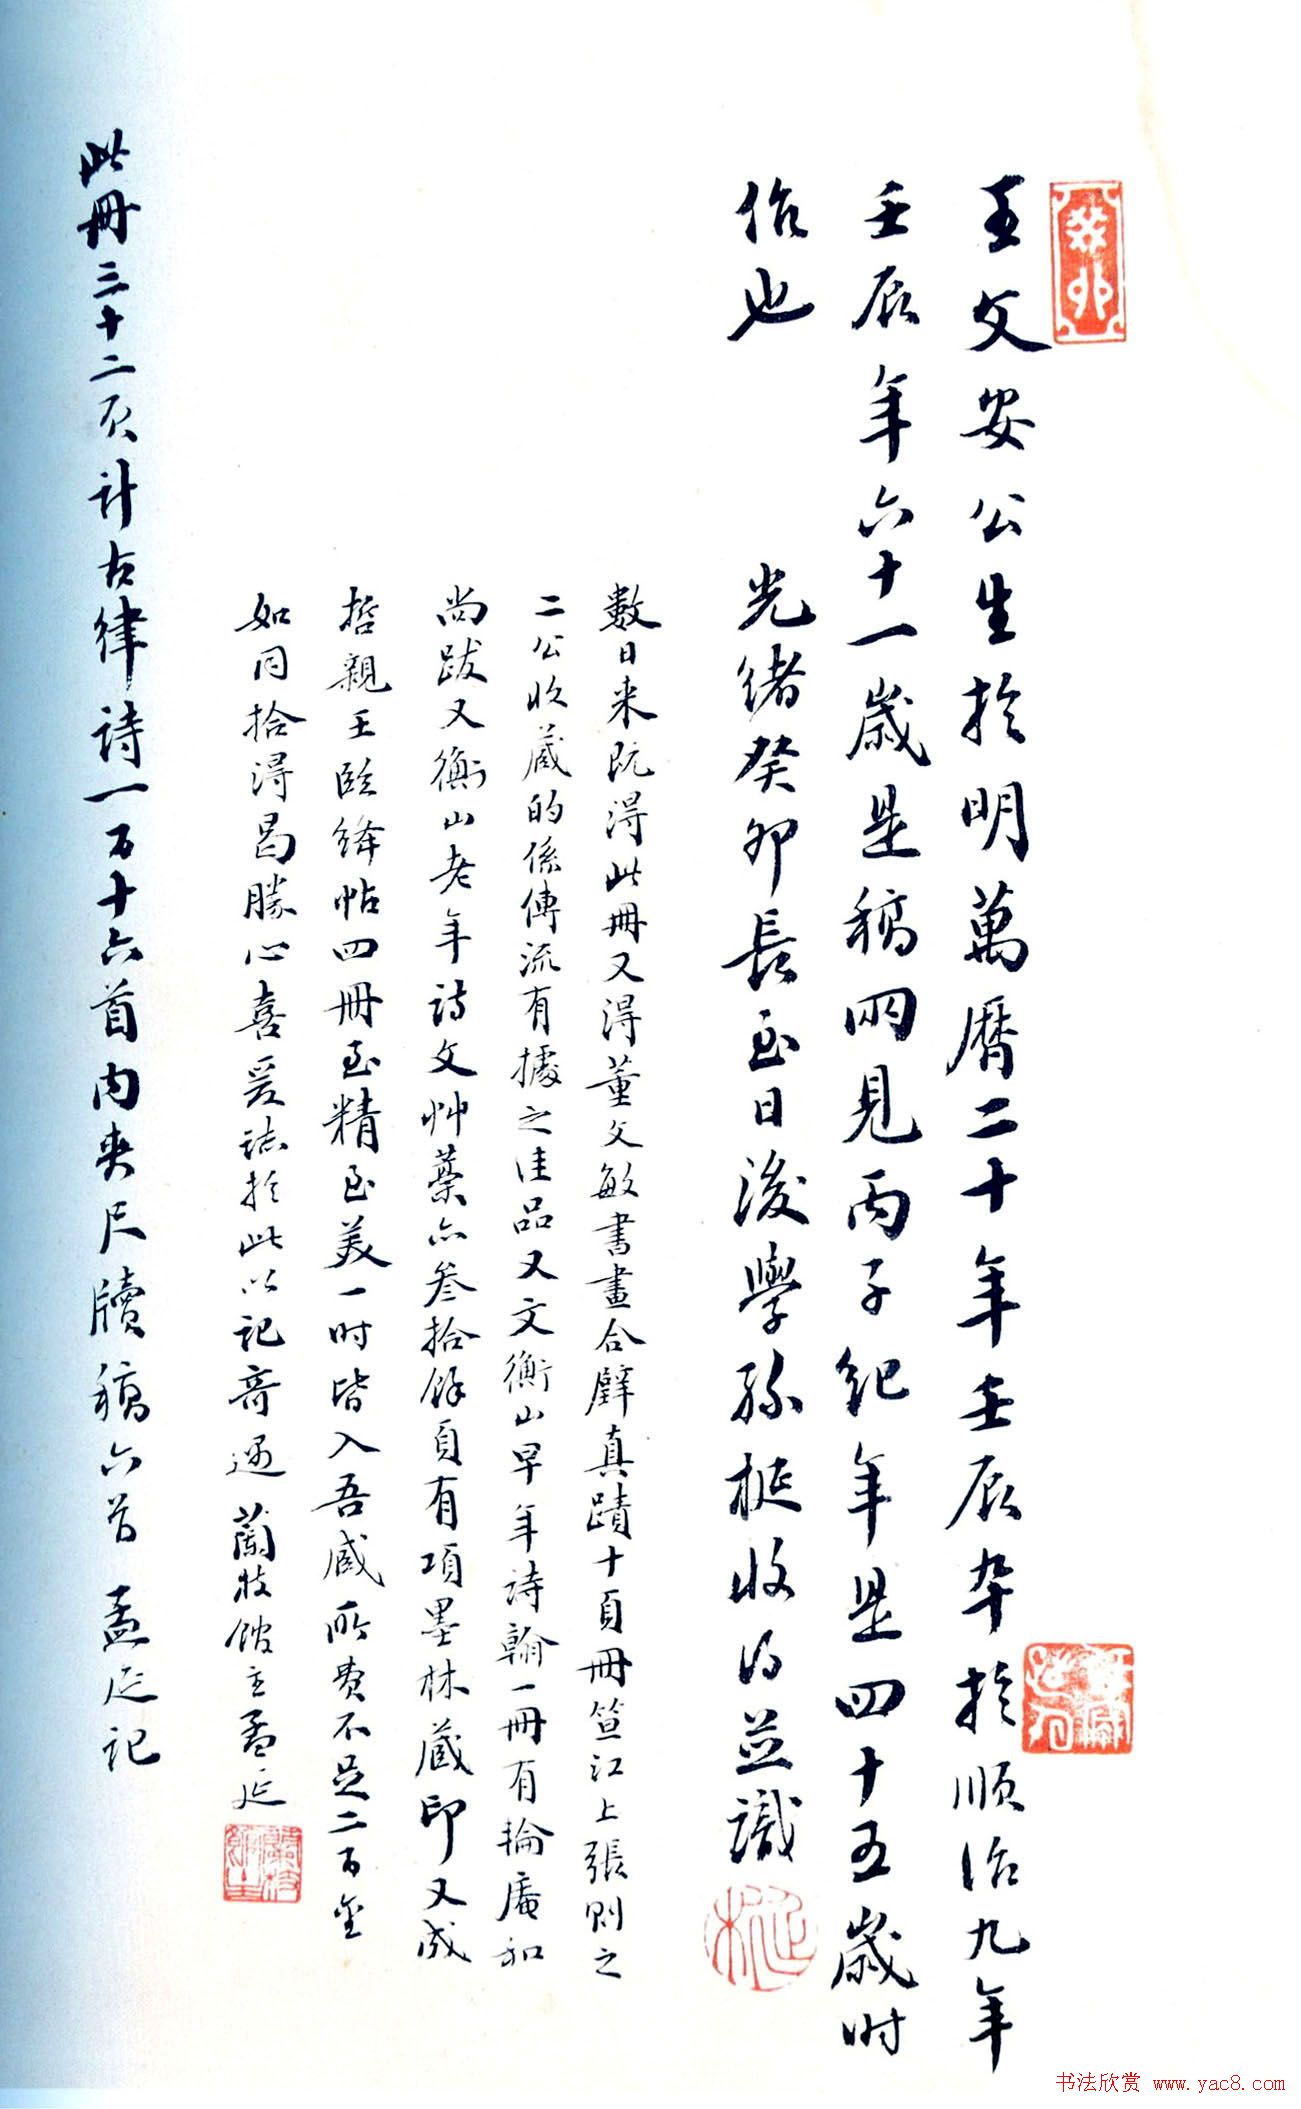 王文安公生於明萬曆二十年壬辰卒於順治九年
壬辰年六十一歲是稿兩見丙子紀年是四十五歲時
作也
光緒癸卯長至日後學孫梴收得並識
數日来既得此冊又得董文敏書畫合璧真蹟十頁冊笪江上張則之
二公收藏的係傳流有據之佳品又文衡山早年詩翰一冊有掄庵和
尚跋又衡山老年詩文艸藁六叁拾餘頁有項墨林藏印又成
哲親王臨絳帖四冊至精至美一时皆入吾藏所費不足二百金
如同拾得曷勝心喜爰誌於此以記奇遇 蘭枝館主孟延
此冊三十二頁計古律詩一百十六首内夾尺牘稿六首 孟延記
癸卯
梴
书法欣赏 www.yac8.com